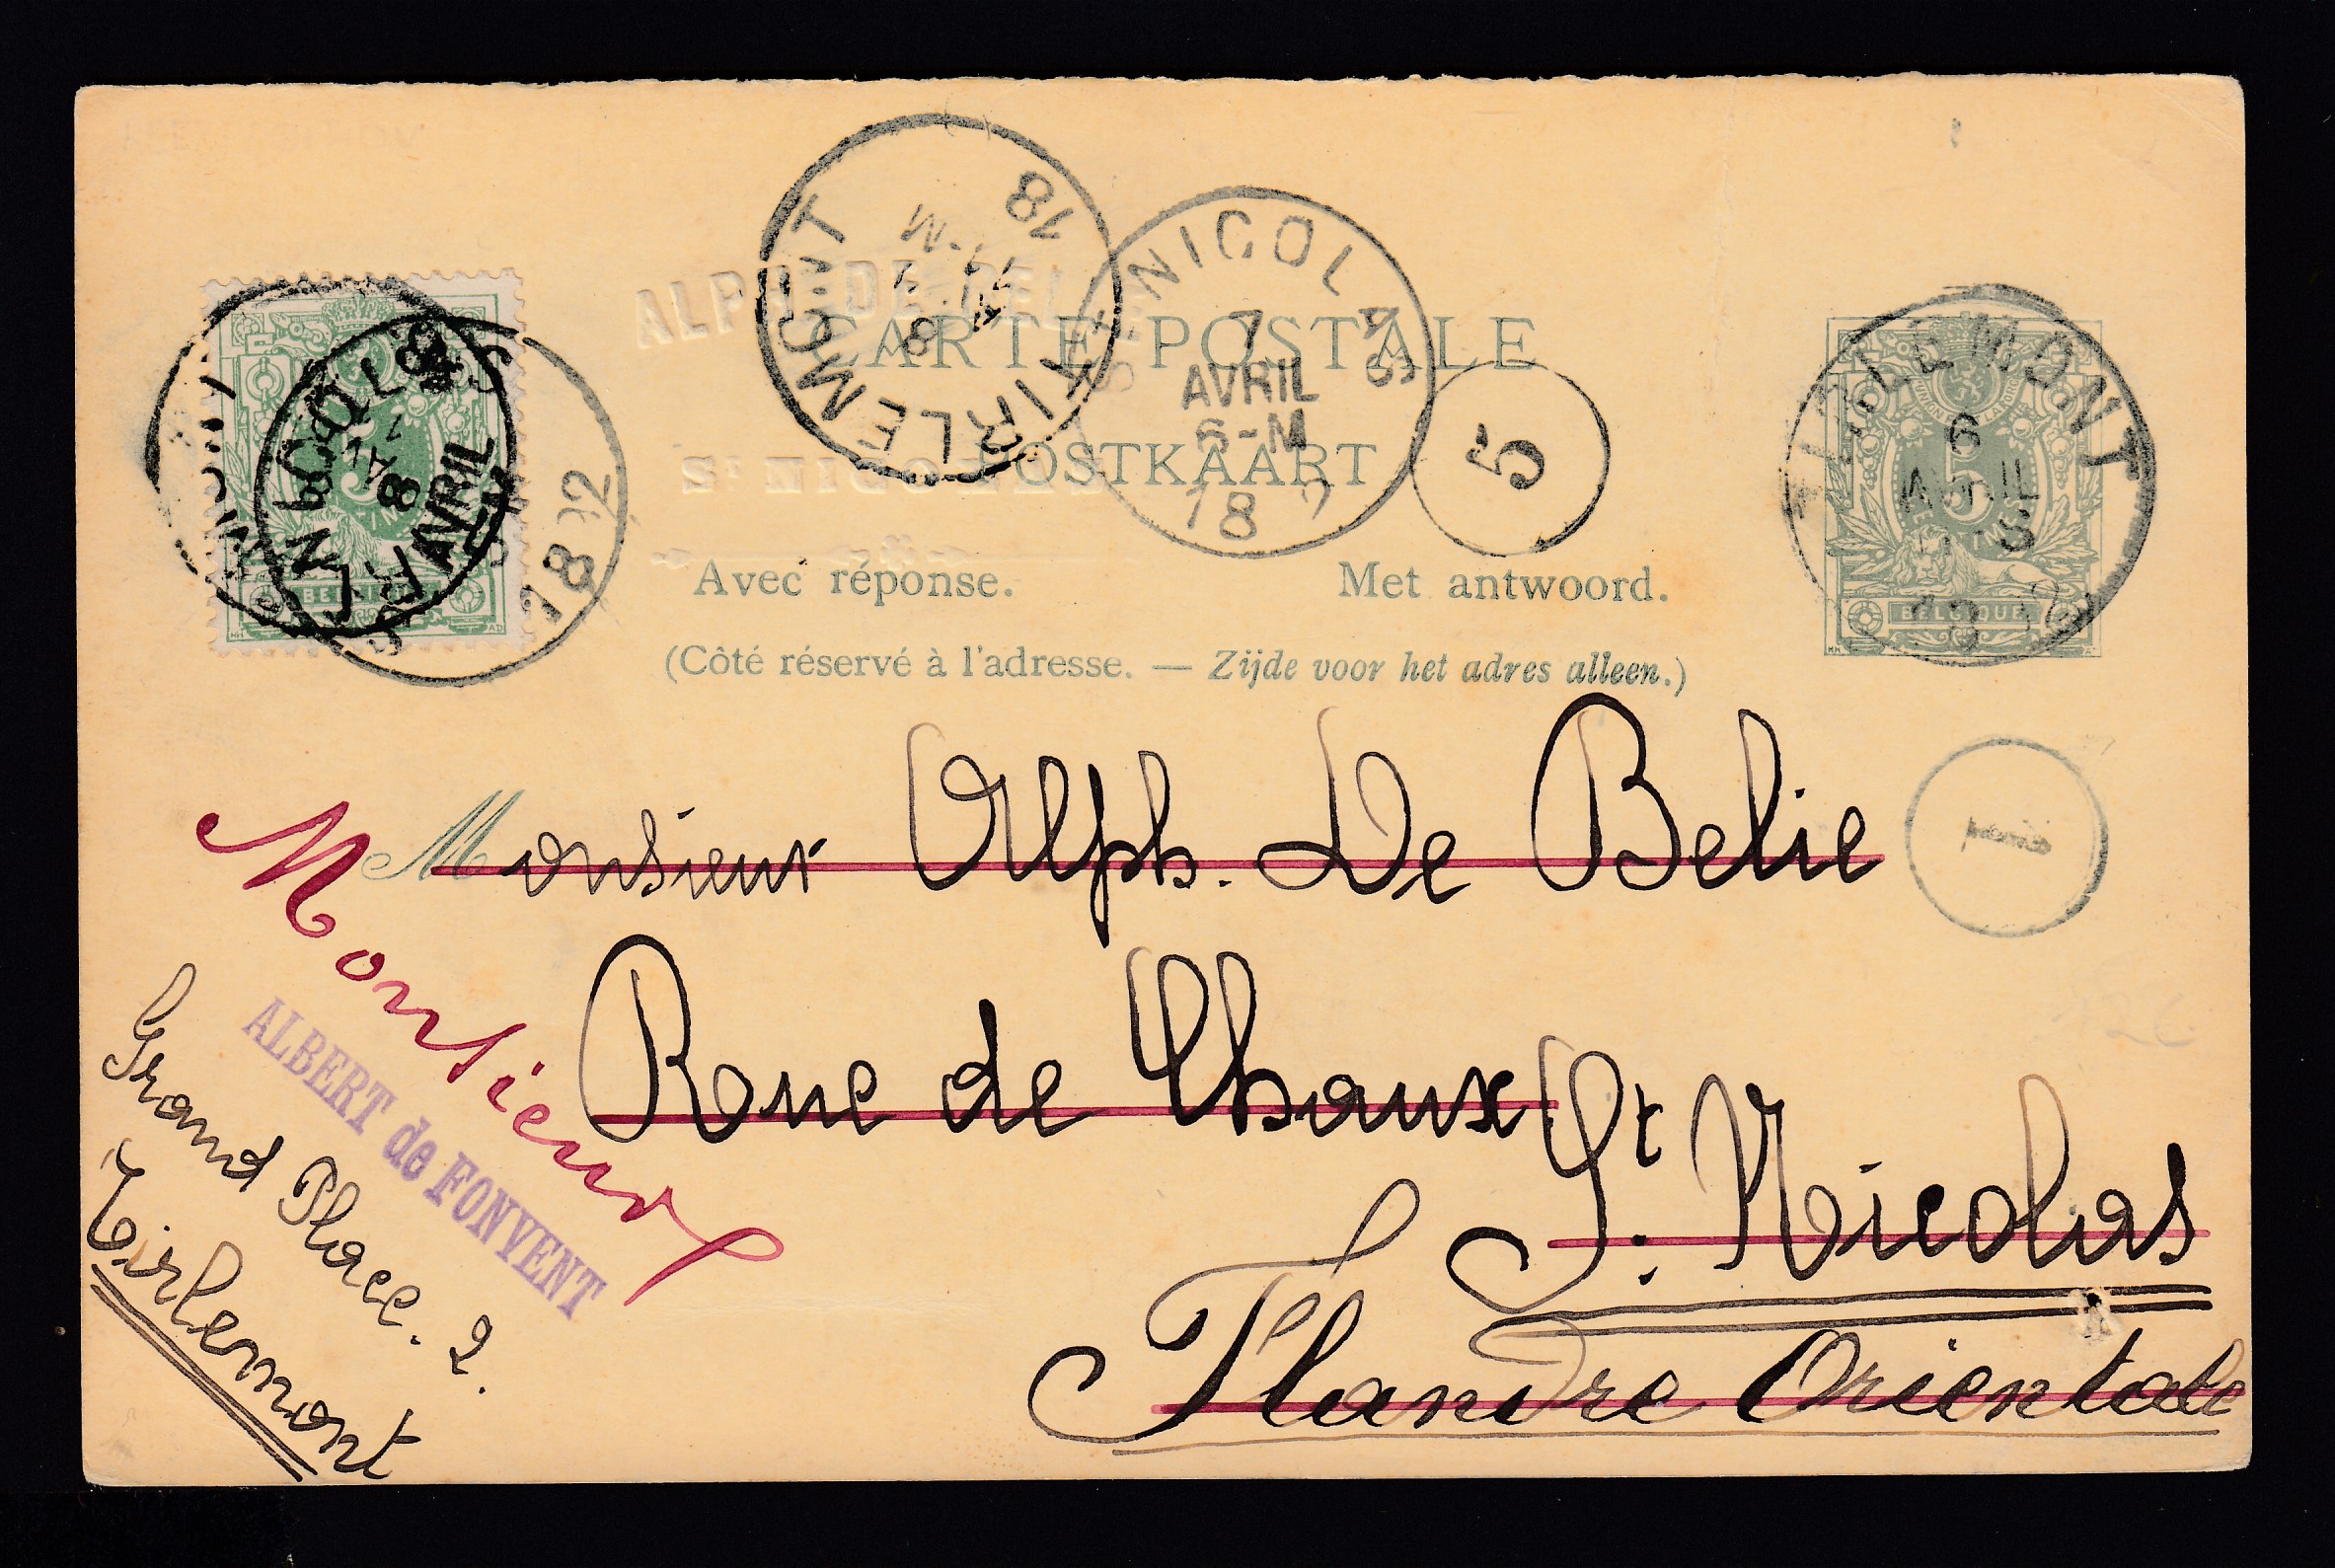 ALPH. DE BEL
CARTE POSTALE
POSTKAART
Avec réponse.
Met antwoord.
(Côté réservé à l'adresse. — Zijde voor het adres alleen.)
TIRLEMONT
18
8
ST NICOLAS
7
AVRIL
6-M
18
5
NICOLAS
AVRIL
1892
BELGIQUE
TIRLEMONT
6
AVRIL
5
BELGIQUE
1
Monsieur Alph. De Belie
Rue de Chaux
St. Nicolas
Flandre Orientale
Monsieur
ALBERT de FONVENT
Grand Place. 2.
Tirlemont